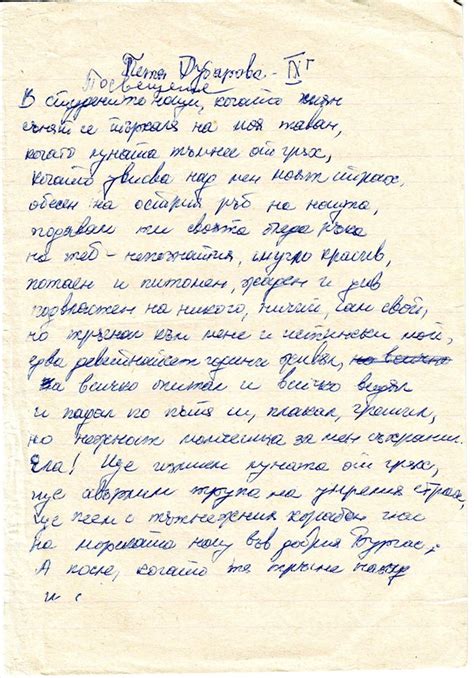 Петя Дубарова - IXг
Посвещение
В студените нощи, когато пиян
сънят се търкаля на моя таван,
когато луната тъмнее от грях,
когато увисва над мен моят страх,
обесен на острия ръб на нощта,
подавам ти своята бледа ръка
на теб - непознатия, смугло красив,
потаен и питомен, жаден и див
подвластен на никого, ничий, сам свой,
но тръгнал към мене и истински мой,
едва деветнайсет години живял,
за всичко питал и всичко видял
и падал по пътя си, плакал, грешил,
но нежност за мен съхранил.
Ела! Ще измием луната от грях,
ще хвърлим трупа на умрелия страх,
ще пеем с тъжнежния корабен глас
на морската нощ във добрия Бургас,
А после, когато тя тръгне
и с